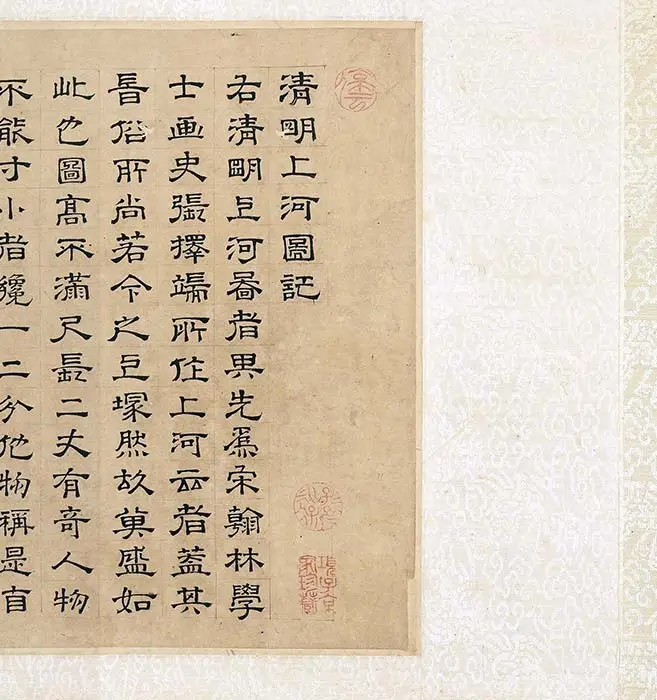 清明上河圖記
右清明上河啚者先爲宋翰林學
士画史張擇端所作上河云者蓋其
旹俗所尚若今之上塚然故其盛如
此也圖高不滿尺長二丈有奇人物
不能寸小者纔一二分他物稱是自
項子京家珍藏